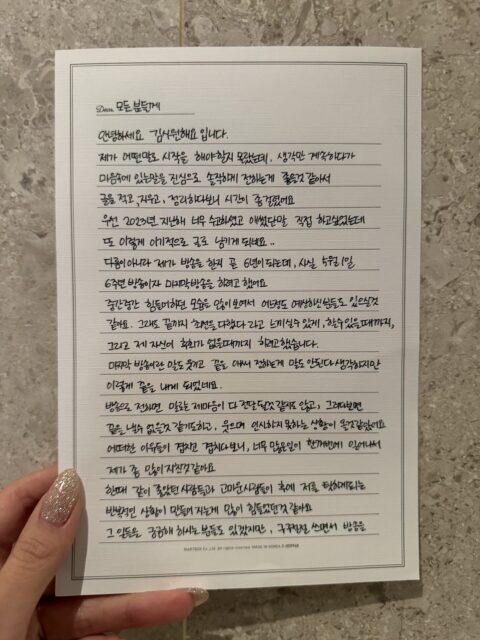 Dear. 모든 분들께
안녕하세요 김시원해요 입니다.
제가 어떤말로 시작을 해야할지 몰랐는데, 생각만 계속하다가
마음속에 있는말을 진심으로 솔직하게 전하는게 좋을것 같아서
글을 적고, 지우고, 정리하다보니 시간이 좀 걸렸어요
우선 2023년 지난해 너무 수고하셨고 애썼단말 직접 하고싶었는데
또 이렇게 이기적으로 글로 남기게 되네요..
다름이아니라 제가 방송을 한지 곧 6년이 되는데, 사실 5월 1일
6주년 방송이자 마지막방송을 하려고 했어요
중간중간 힘들어하던 모습을 많이 보여서 어느정도 예상하신분들도 있으실것
같아요. 그래도 끝까지 최선을 다했다 라고 느끼실수 있게, 할수있을때까지,
그리고 제 자신이 후회가 없을때까지 하려고 했습니다.
마지막 방송이란 말도 웃고 끝을 애써 전하는게 말도 안된다 생각하지만
이렇게 끝을 내게 되었네요.
방송으로 전하면 말로는 제마음이 다 전달될것 같지도 않고, 그러다보면
끝을 낼수 없을것 같기도하고, 웃으며 인사하지 못하는 상황이 올것같았어요
어떠한 이유들이 겹치고 겹치다보니, 너무 많은일이 한꺼번에 일어나서
제가 좀 많이 지친것 같아요
한때 같이 좋았던 사람들과 고마운사람들이 후에 저를 탓하게되는
반복적인 상황이 만들어 지는게 많이 힘들었던것 같아요
그 일들을 궁금해 하시는 분들도 있겠지만, 구구절절 쓰면서 방송을
MARTBOX Co.,Ltd. All rights reserved. MADE IN KOREA